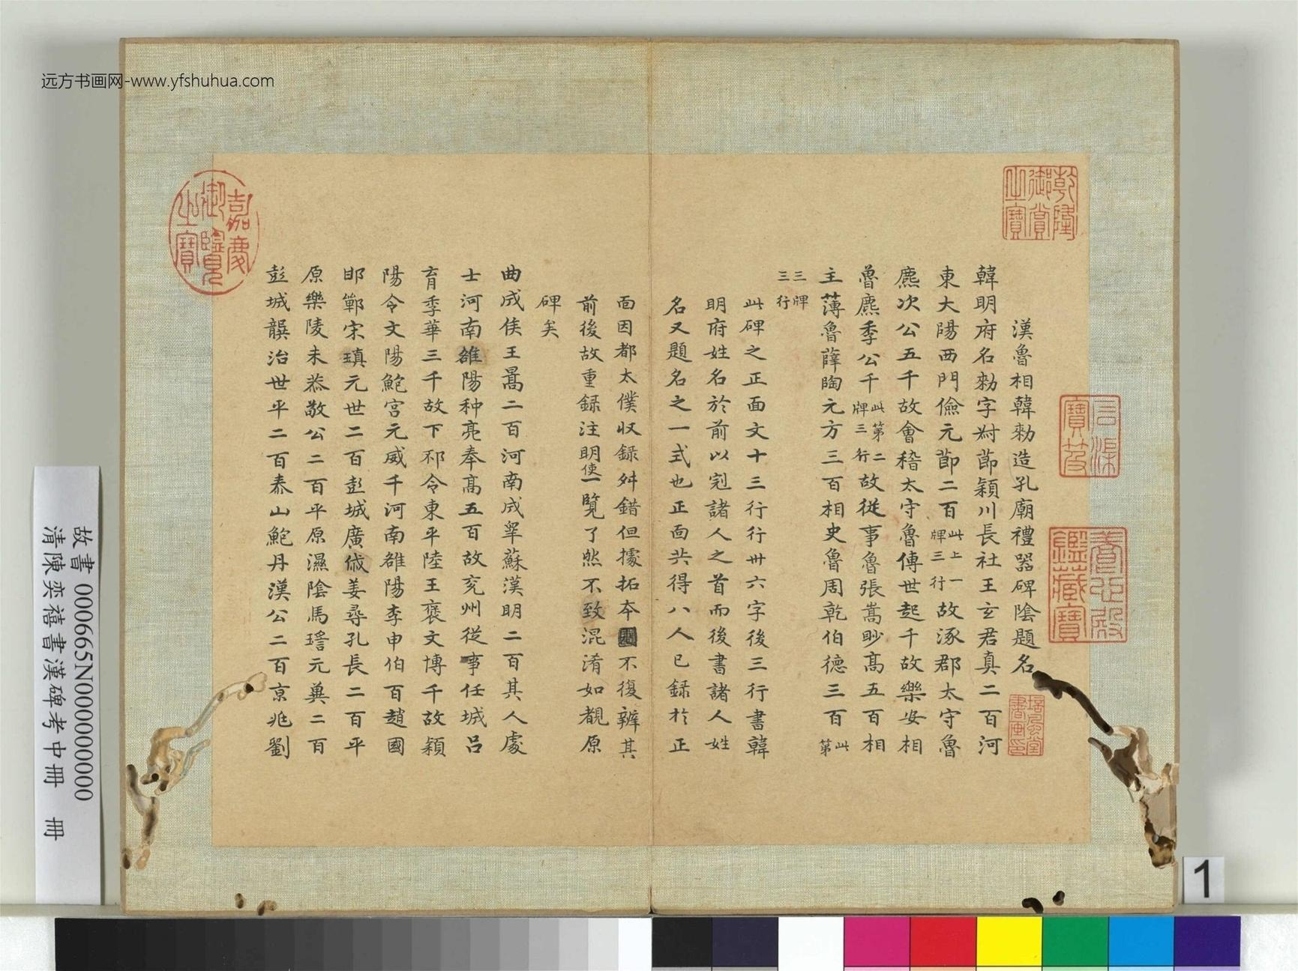 远方书画网-www.yfshuhua.com
乾隆御賞之寶
石渠寶笈
養心殿鑑藏寶
嘉慶御覽之寶
漢魯相韓勑造孔廟禮器碑陰題名
韓明府名勑字叔節穎川長社王玄君真二百河
東大陽西門儉元節二百此上一牌三行故涿郡太守魯
麃次公五千故會稽太守魯傅世起千故樂安相
魯麃季公千此第二牌三行故從事魯張嵩眇高五百相
主薄魯薛陶元方三百相史魯周乾伯德三百此第
三牌三行
此碑之正面文十三行行卅六字後三行書韓
明府姓名於前以冠諸人之首而後書諸人姓
名又題名之一式也正面共得八人已録於正
面因都太僕収録舛錯但據拓本不復辨其
前後故重録注明使一覽了然不致混淆如覩原
碑矣
曲成侯王暠二百河南成睪蘇漢明二百其人處
士河南雒陽种亮奉高五百故兖州從事任城呂
育季華三千故下邳令東平陸王褒文博千故穎
陽令文陽鮑宮元威千河南雒陽李申伯百趙國
邯鄲宋瑱元世二百彭城廣戚姜尋孔長二百平
原樂陵朱恭敬公二百平原濕陰馬瑨元冀二百
彭城龔治世平二百泰山鮑丹漢公二百京兆劉
故書 000665N000000000
清陳奕禧書漢碑考 中冊 冊
1